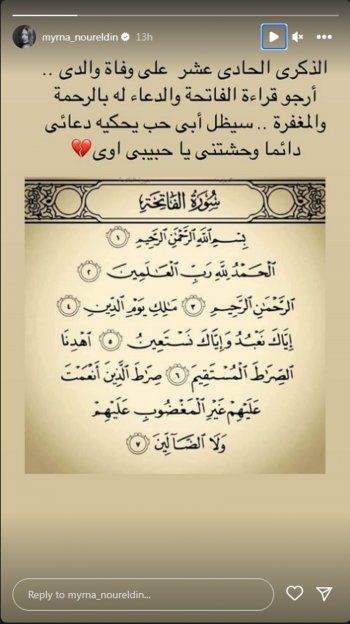 myrna_noureldin 13h
الذكرى الحادى عشر على وفاة والدى ..
أرجو قراءة الفاتحة والدعاء له بالرحمة
والمغفرة .. سيظل أبى حب يحكيه دعائى
دائما وحشتنى يا حبيبى اوى💔
سُورَةُ الفَاتِحَةِ
بِسْمِ اللَّهِ الرَّحْمَٰنِ الرَّحِيمِ ١
الْحَمْدُ لِلَّهِ رَبِّ الْعَالَمِينَ ٢
الرَّحْمَٰنِ الرَّحِيمِ ٣ مَالِكِ يَوْمِ الدِّينِ ٤
إِيَّاكَ نَعْبُدُ وَإِيَّاكَ نَسْتَعِينُ ٥ اهْدِنَا
الصِّرَاطَ الْمُسْتَقِيمَ ٦ صِرَاطَ الَّذِينَ أَنْعَمْتَ
عَلَيْهِمْ غَيْرِ الْمَغْضُوبِ عَلَيْهِمْ
وَلَا الضَّالِّينَ ٧
Reply to myrna_noureldin...